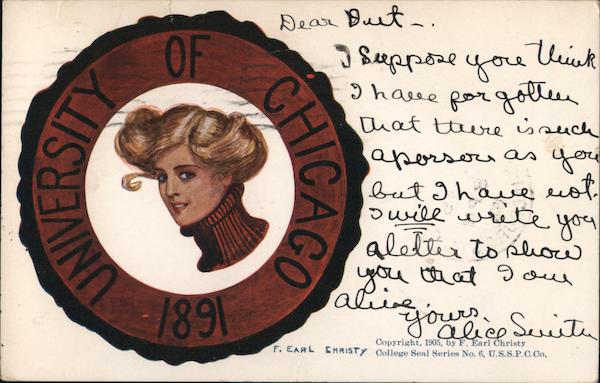 UNIVERSITY OF CHICAGO
1891
Dear Dut-.
I suppose you think
I have forgotten
that there is such
a person as you
but I have not.
I will write you
a letter to show
you that I am
alive.
Yours
Alice Smith
F. EARL CHRISTY
Copyright, 1905, by F. Earl Christy
College Seal Series No. 6, U.S.S.P.C.Co.